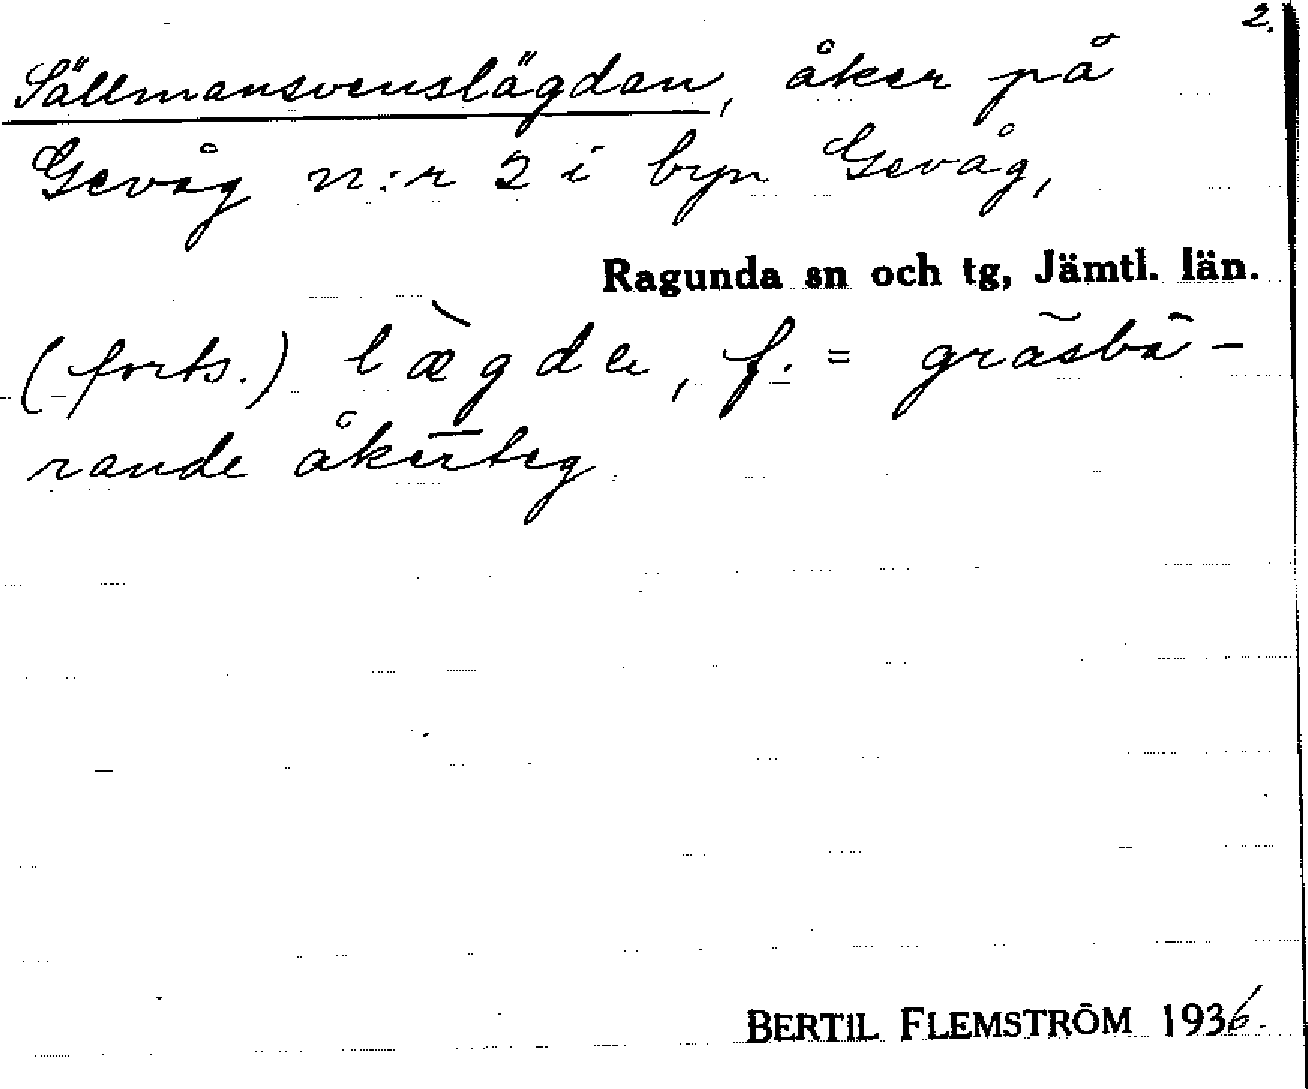 2.
Sällmansvenslägdan, åker på
Gevåg n:r 2 i byn Gevåg,
Ragunda sn och tg, Jämtl. län.
(forts.) læ̀gda, f. = gräsbä-
rande åkerteg.
BERTIL FLEMSTRÖM 1936.